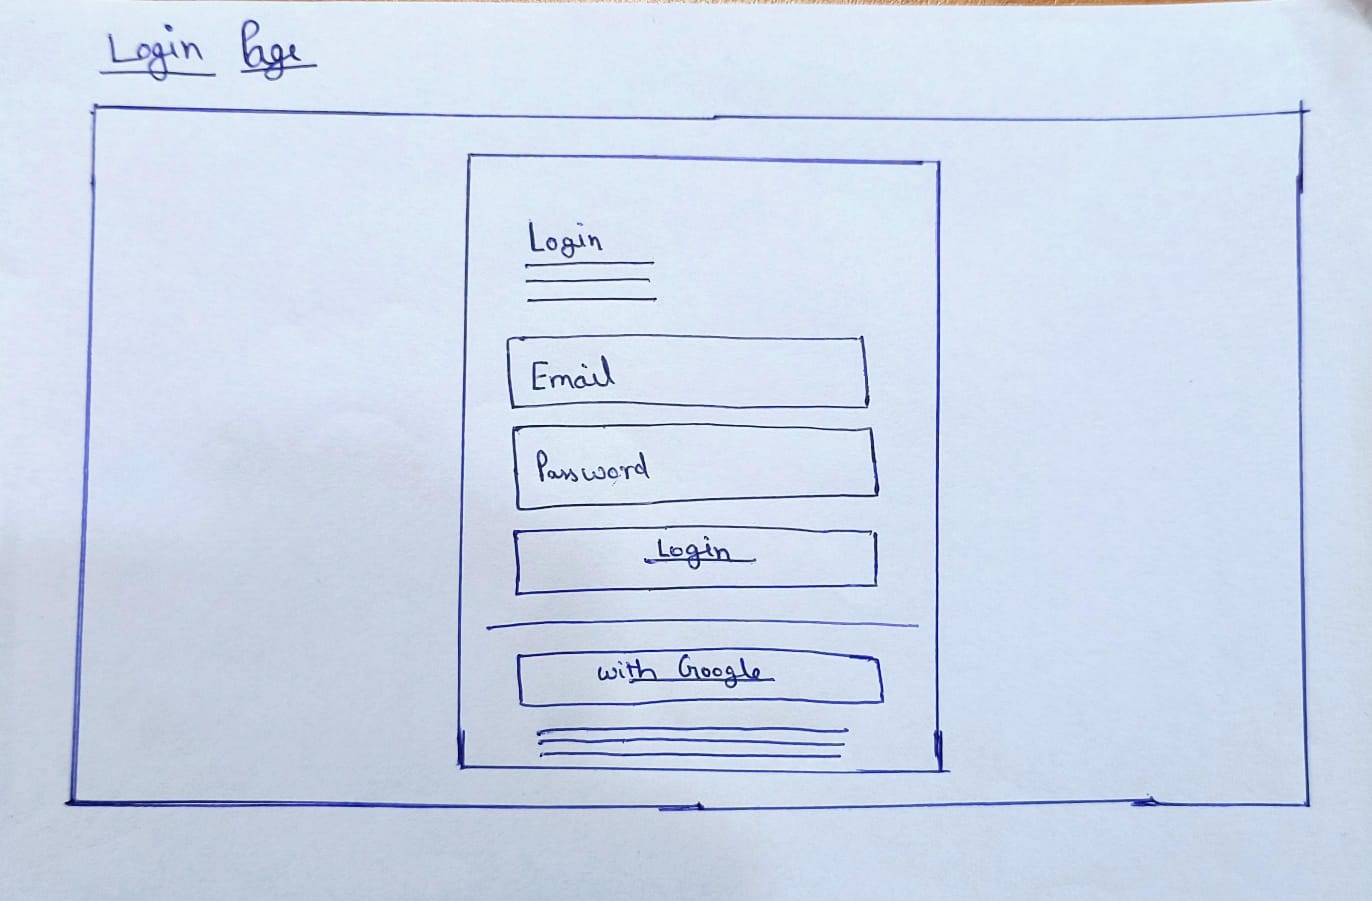 Login Page
Login
Email
Password
Login
with Google